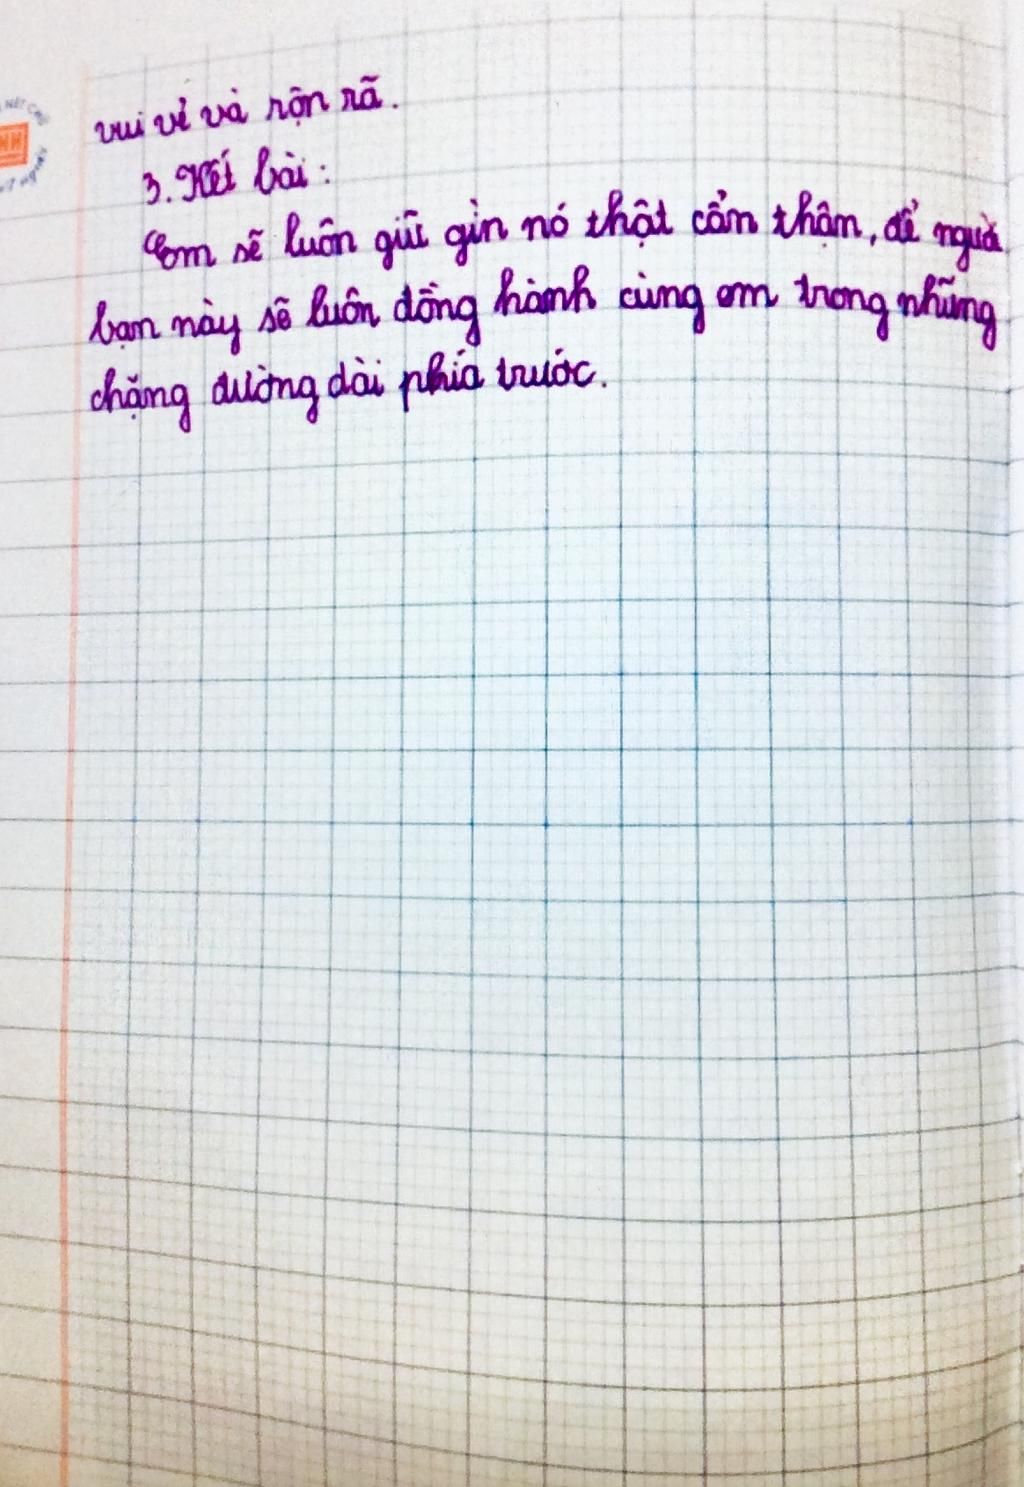 vui vẻ và rộn rã.
3. Kết bài:
Em sẽ luôn giữ gìn nó thật cẩn thậm, để người
bạn này sẽ luôn đồng hành cùng em trong những
chặng đường dài phía trước.